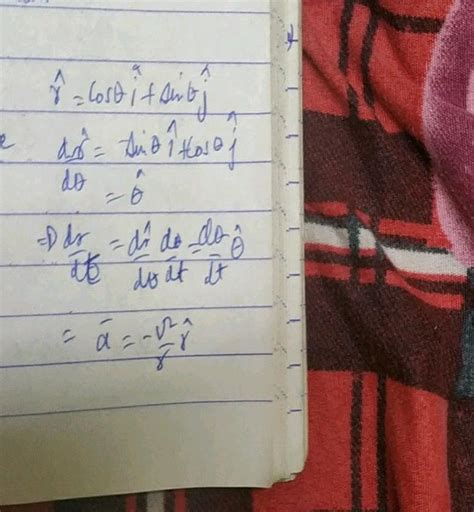 r̂ = cosθ î + sinθ ĵ
dr̂/dθ = -sinθ î + cosθ ĵ
= θ̂
⇒ dr̂/dt = dr̂/dθ dθ/dt = dθ/dt θ̂
= ā = -v²/r r̂